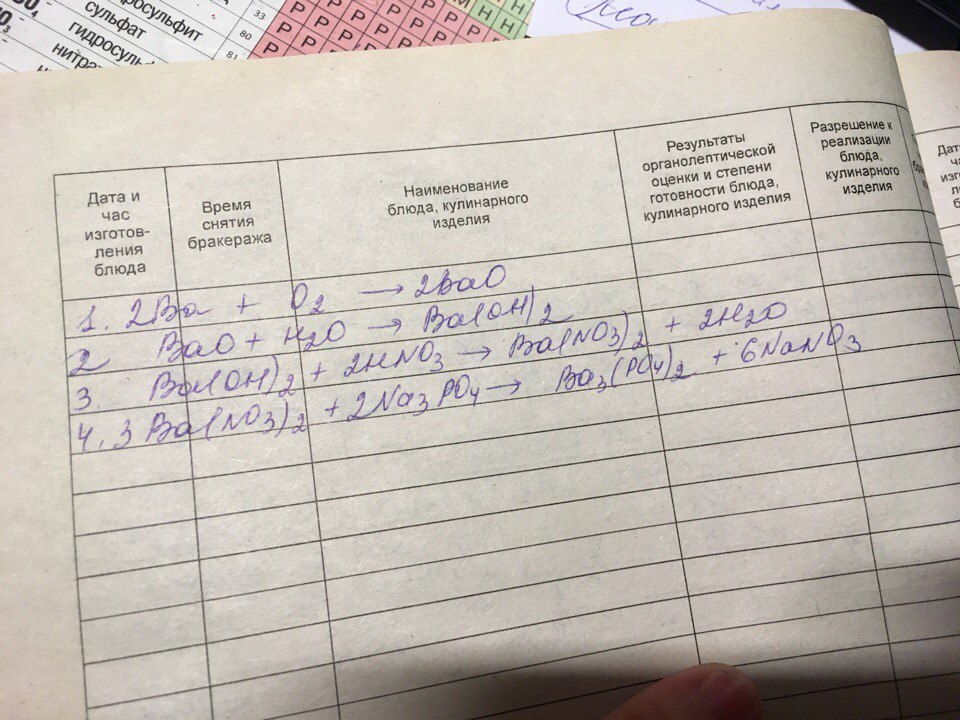 сульфит
33
сульфат
80
гидросульф
81
нитра
Р Р Р Р М Н Н
Дата и
час
изготов-
ления
блюда
Время
снятия
бракеража
Наименование
блюда, кулинарного
изделия
Результаты
органолептической
оценки и степени
готовности блюда,
кулинарного изделия
Разрешение к
реализации
блюда,
кулинарного
изделия
1. 2Ba + O2 → 2BaO
2 BaO + H2O → Ba(OH)2
3. Ba(OH)2 + 2HNO3 → Ba(NO3)2 + 2H2O
4. 3Ba(NO3)2 + 2Na3PO4 → Ba3(PO4)2 + 6NaNO3